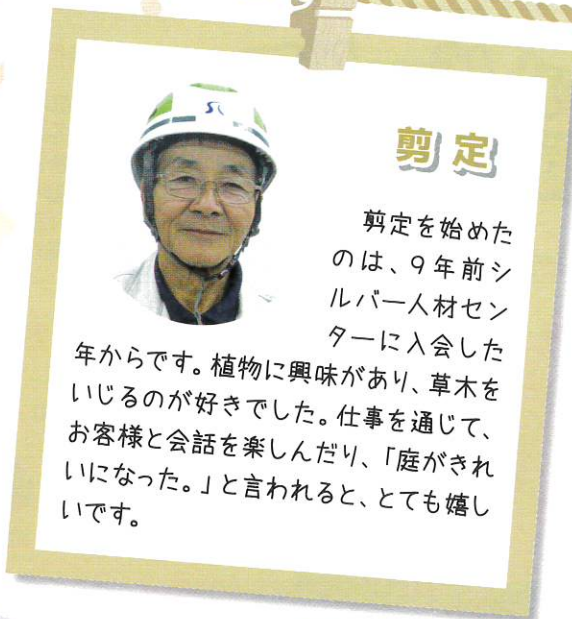 剪定
剪定を始めた
のは、9年前シ
ルバー人材セン
ターに入会した
年からです。植物に興味があり、草木を
いじるのが好きでした。仕事を通じて、
お客様と会話を楽しんだり、「庭がきれ
いになった。」と言われると、とても嬉し
いです。